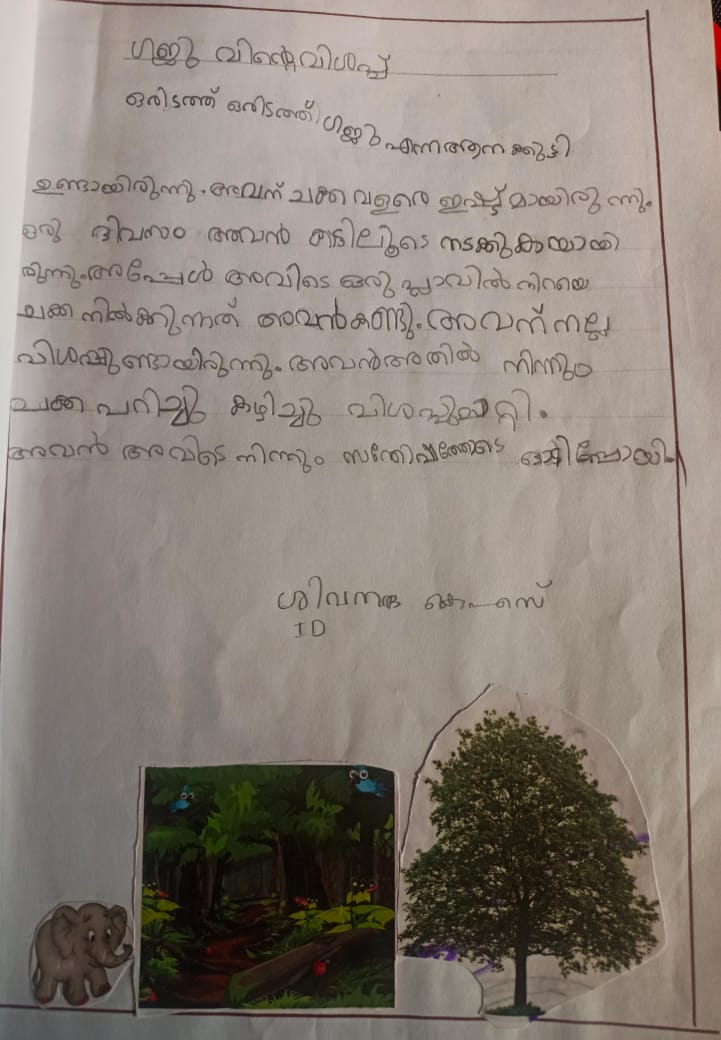 ഗജു വിന്റെ വിശപ്പ്
ഒരിടത്ത് ഒരിടത്ത് ഗജു എന്ന ആന ക്കുട്ടി
ഉണ്ടായിരുന്നു. അവന് ചക്ക വളരെ ഇഷ്ട്ടമായിരു ന്നു.
ഒരു ദിവസം അവൻ കാട്ടിലൂടെ നടക്കുകയായി
രുന്നു. അപ്പോൾ അവിടെ ഒരു പ്ലാവിൽ നിറയെ
ചക്ക നിൽക്കുന്നത് അവൻ കണ്ടു. അവന് നല്ല
വിശപ്പുണ്ടായിരുന്നു. അവൻ അതിൽ നിന്നും
ചക്ക പറിച്ചു കഴിച്ചു വിശപ്പുമാറ്റി.
അവൻ അവിടെ നിന്നും സന്തോഷത്തോടെ ഓടിപ്പോയി.
ശിവനന്ദ കെ എസ്
I D